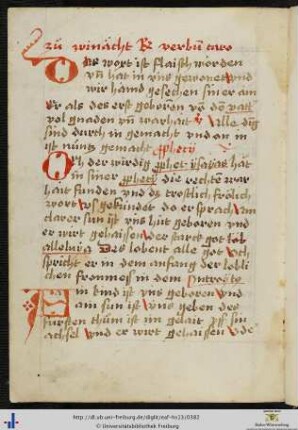 zů winächt R verbū caro
Das wort ist flaisch worden
vn̄ hat in vns gewonet vnd
wir hand gesechen siner am
Er als des erst geboren vō dē vatt
vol gnaden vn̄ warhait Alle dīg
sind durch in gemacht vnd an in
ist nüntz gemacht
Och der wirdig ysayas hät
in siner die rechten war
hait funden vnd dz trostlich frölich
wort vns gekündet do er sprach Vun
clarer sun ist vns hüt geboren vnd
er wirt gehaissen der starck got
alleluya Des lobent alle got Och
spricht er in dem anfang der lobli
chen fronmess in dem Introyte
in kind ist vns geboren vnd
ain sun ist vns geben des
fürsten thům ist im gelait vff sin
achsel vnd er wirt gehaissen
http://dl.ub.uni-freiburg.de/diglit/eaf-hs23/0382
© Universitätsbibliothek Freiburg
Baden-Württemberg